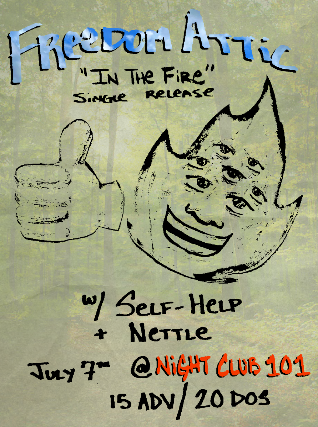 FREEDOM ATTIC
"IN THE FIRE"
SINGLE RELEASE
w/ SELF-HELP
+ NETTLE
JULY 7TH @ NIGHT CLUB 101
15 ADV/20 DOS